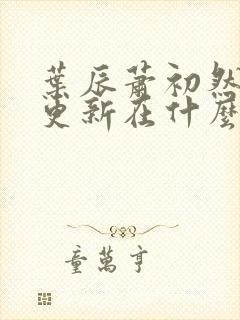 葉辰蕭初然
更新在什麼
童萬亨